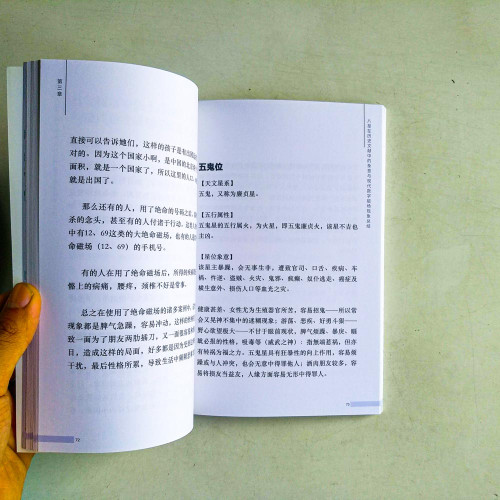 第三章
直接可以告诉她们，这样的孩子是
对的。因为这个国家小啊，是中国的北京
面积，就是一个国家了，所以这里的人
就是出国了。
那么还有的人，用了绝命的号码之后，
杀的念头，甚至有的人付诸于行动。这
中有12、69这类的大绝命磁场，也有的人
命磁场（12、69）的手机号。
有的人在用了绝命磁场后，所得
髂上的病痛，腰疼，颈椎不好是常事。
总之在使用了绝命磁场的诸多案例中，
现象都是脾气急躁，容易冲动，这样的性
致一面为了朋友两肋插刀，又一面
造成这样的局面，好多都是因为
干扰，最后性格所累，导致生活中频频
72
五鬼位
【天文星系】
五鬼星，又称为廉贞星。
【五行属性】
五鬼星的五行属火，为火星，即五鬼廉贞火，该星不吉也
主凶。
【星位象意】
该星主暴躁，会无事生非，遭致官司、口舌、疾病、车
祸、忤逆、盗贼、火灾、鬼邪、癫癎、奴仆逃走；癌症及
横生意外、损伤人口等血光之灾。
健康甚差，女性尤为生殖器官所苦，容易招鬼——所以常
会又晃神不集中的迷糊现象；游荡、恶疾、好勇斗狠——
野心欲望极大——不甘于眼前现状，脾气烦躁、暴戾，嗔
叱必报的性格，吸毒等（威武之神）：指無端惹祸，但亦
有转祸为福之力。五鬼星具有狂暴性的向上作用，容易烦
躁或与人冲突，也会无意中得罪他人；酒肉朋友较多，容
易将损友当益友，人缘方面容易无形中得罪人。